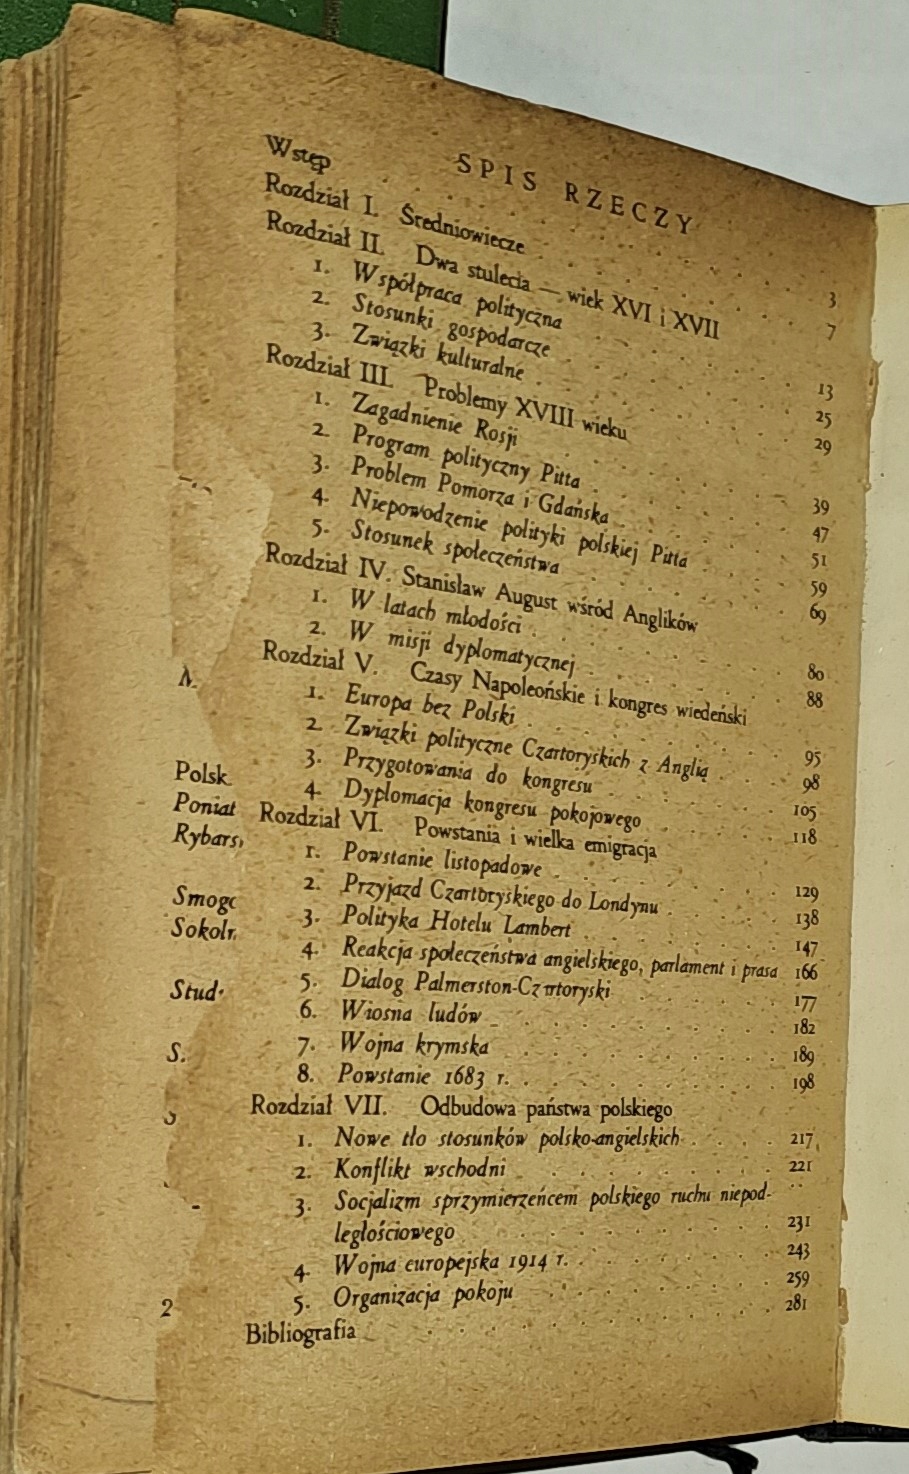 SPIS RZECZY
Wstęp 3
Rozdział I. Średniowiecze 7
Rozdział II. Dwa stulecia — wiek XVI i XVII
1. Współpraca polityczna 13
2. Stosunki gospodarcze 25
3. Związki kulturalne 29
Rozdział III. Problemy XVIII wieku
1. Zagadnienie Rosji 39
2. Program polityczny Pitta 47
3. Problem Pomorza i Gdańska 51
4. Niepowodzenie polityki polskiej Pitta 59
5. Stosunek społeczeństwa 69
Rozdział IV. Stanisław August wśród Anglików
1. W latach młodości 80
2. W misji dyplomatycznej 88
Rozdział V. Czasy Napoleońskie i kongres wiedeński
1. Europa bez Polski 95
2. Związki polityczne Czartoryskich z Anglią 98
3. Przygotowania do kongresu 105
4. Dyplomacja kongresu pokojowego 118
Rozdział VI. Powstania i wielka emigracja
1. Powstanie listopadowe 129
2. Przyjazd Czartoryskiego do Londynu 138
3. Polityka Hotelu Lambert 147
4. Reakcja społeczeństwa angielskiego, parlament i prasa 166
5. Dialog Palmerston-Czartoryski 177
6. Wiosna ludów 182
7. Wojna krymska 189
8. Powstanie 1683 r. 198
Rozdział VII. Odbudowa państwa polskiego
1. Nowe tło stosunków polsko-angielskich 217
2. Konflikt wschodni 221
3. Socjalizm sprzymierzeńcem polskiego ruchu niepod-
ległościowego 231
4. Wojna europejska 1914 r. 243
5. Organizacja pokoju 259
Bibliografia 281
Polsk
Poniat
Rybars
Smogo
Sokoln
Stud
S.
2